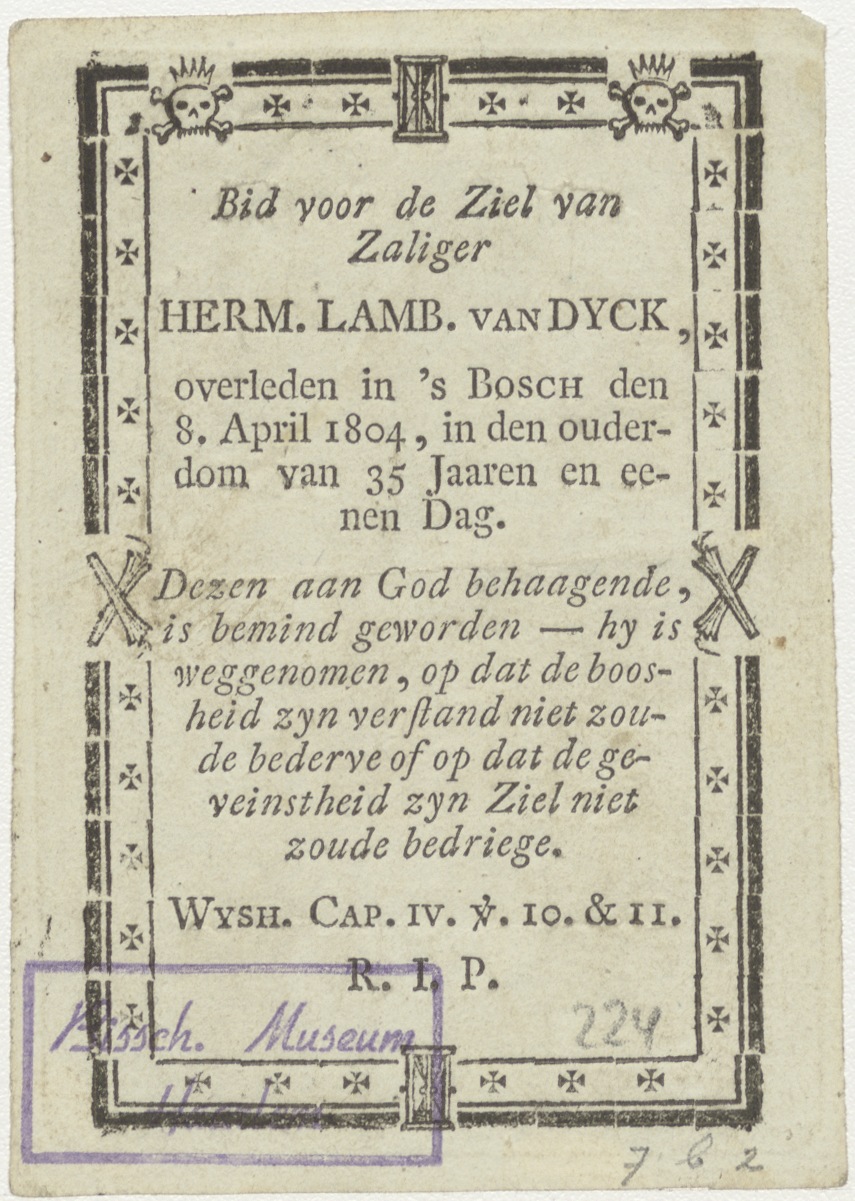 Bid voor de Ziel van
Zaliger
HERM. LAMB. VAN DYCK,
overleden in 's BOSCH den
8. April 1804, in den ouder-
dom van 35 Jaaren en ee-
nen Dag.
Dezen aan God behaagende,
is bemind geworden — hy is
weggenomen, op dat de boos-
heid zyn verſtand niet zou-
de bederve of op dat de ge-
veinstheid zyn Ziel niet
zoude bedriege.
WYSH. CAP. IV. ℣. 10. & 11.
R. I. P.
Bissch. Museum
Haarlem
224
7 6 2